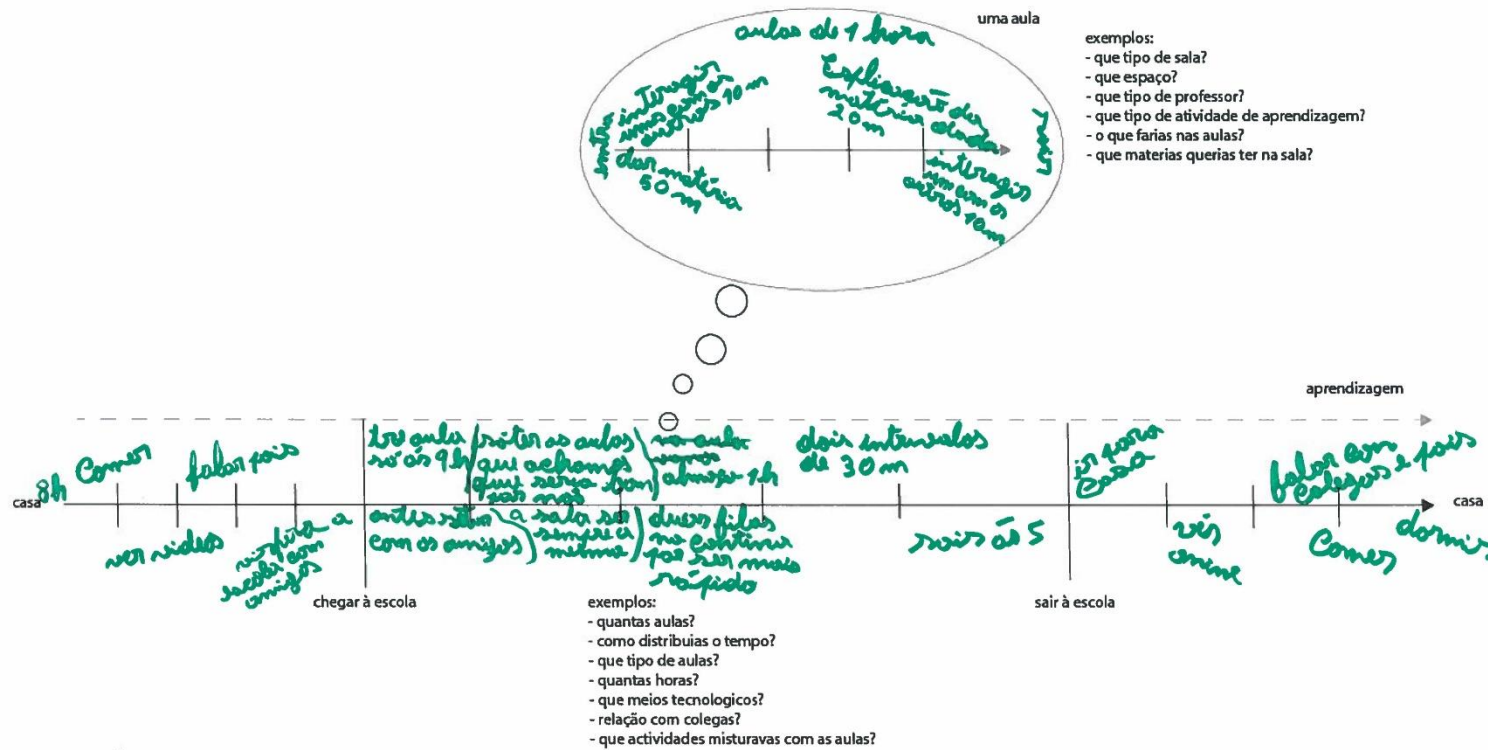 uma aula
aulas de 1 hora
exemplos:
- que tipo de sala?
- que espaço?
- que tipo de professor?
- que tipo de atividade de aprendizagem?
- o que farias nas aulas?
- que materias querias ter na sala?
entra
interagir
uns com os
outros 10 m
dar matéria
50 m
Explicação da
matéria dada
20 m
interagir
uns com os
outros 10 m
sair
aprendizagem
casa
8h
Comer
falar pais
ver videos
vir para a
escola com
amigos
chegar à escola
ter aula
só às 9h
só ter as aulas
que achamos
que seria bom
para nós
antes estar
com os amigos
a sala ser
sempre a
mesma
almoço 1h
duas filas
na cantina
por ser mais
rápido
dois intervalos
de 30 m
sais às 5
sair à escola
ir para
casa
vês
anime
falar com
colegas e pais
Comes
dormir
casa
exemplos:
- quantas aulas?
- como distribuias o tempo?
- que tipo de aulas?
- quantas horas?
- que meios tecnologicos?
- relação com colegas?
- que actividades misturavas com as aulas?